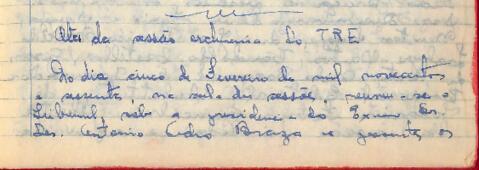 Ata da sessão ordinaria do TRE
No dia cinco de Fevereiro de mil novecentos
e sessenta, na sala da sessão, reuniu-se o
Tribunal, sob a presidencia do Exmo Sr.
Des. Antonio Pedro Braga e presentes os